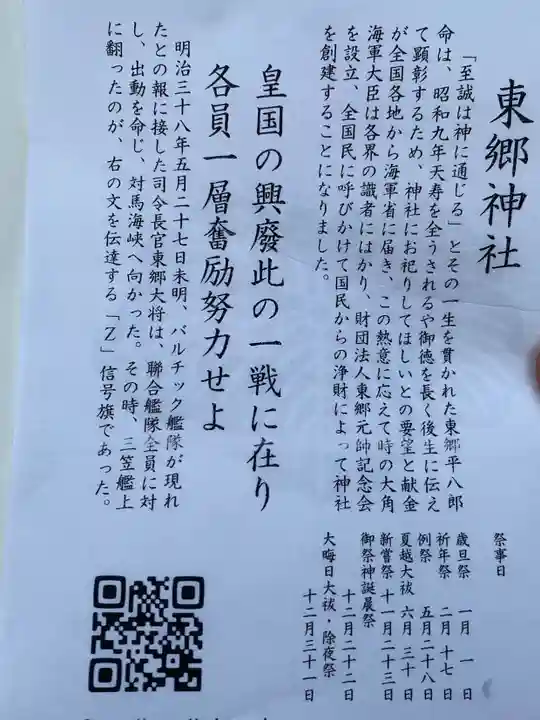 東郷神社
「至誠は神に通じる」とその一生を貫かれた東郷平八郎
命は、昭和九年天寿を全うされるや御徳を長く後生に伝え
て顕彰するため、神社にお祀りしてほしいとの要望と献金
が全国各地から海軍省に届き、この熱意に応えて時の大角
海軍大臣は各界の識者にはかり、財団法人東郷元帥記念会
を設立、全国民に呼びかけて国民からの浄財によって神社
を創建することになりました。
皇国の興廢此の一戦に在り
各員一層奮励努力せよ
明治三十八年五月二十七日未明、バルチック艦隊が現れ
たとの報に接した司令長官東郷大将は、聯合艦隊全員に対
し、出動を命じ、対馬海峡へ向かった。その時、三笠艦上
に翻ったのが、右の文を伝達する「Z」信号旗であった。
祭事日
歳旦祭 一月一日
祈年祭 二月十七日
例祭 五月二十八日
夏越大祓 六月三十日
新嘗祭 十一月二十三日
御祭神誕晨祭
十二月二十二日
大晦日大祓・除夜祭
十二月三十一日